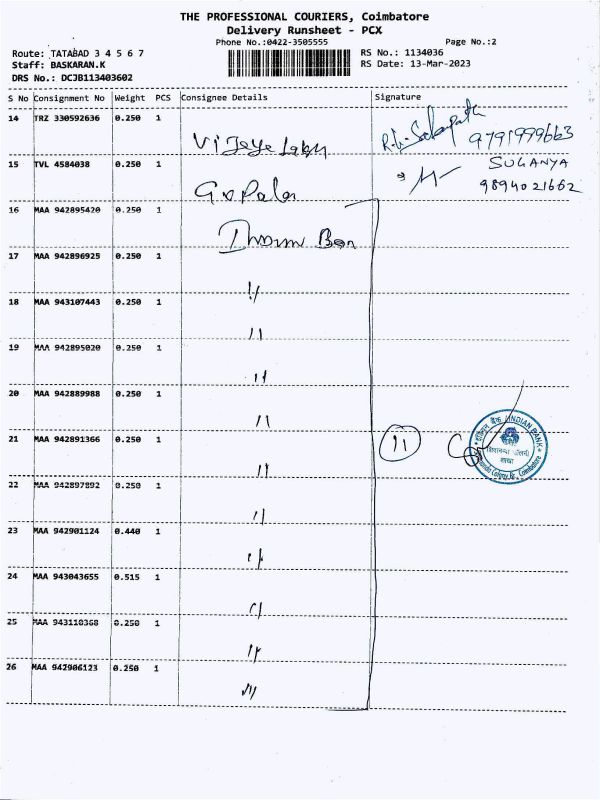 THE PROFESSIONAL COURIERS, Coimbatore
Delivery Runsheet - PCX
Phone No.:0422-3505555 Page No.:2
Route: TATABAD 3 4 5 6 7 RS No.: 1134036
Staff: BASKARAN.K RS Date: 13-Mar-2023
DRS No.: DCJB113403602
S No Consignment No Weight PCS Consignee Details Signature
14 TRZ 330592636 0.250 1
9791999663
15 TVL 4584038 0.250 1 SUGANYA
Gopalan 9894021662
16 MAA 942895420 0.250 1
17 MAA 942896925 0.250 1
18 MAA 943107443 0.250 1
11
19 MAA 942895020 0.250 1
11
20 MAA 942889988 0.250 1
11
21 MAA 942891366 0.250 1 11
11
22 MAA 942897892 0.250 1
11
23 MAA 942901124 0.440 1
24 MAA 943043655 0.515 1
25 MAA 943110368 0.250 1
26 MAA 942906123 0.250 1
इंडियन बैंक INDIAN BANK
शाखा
Colony Br. Coimbatore